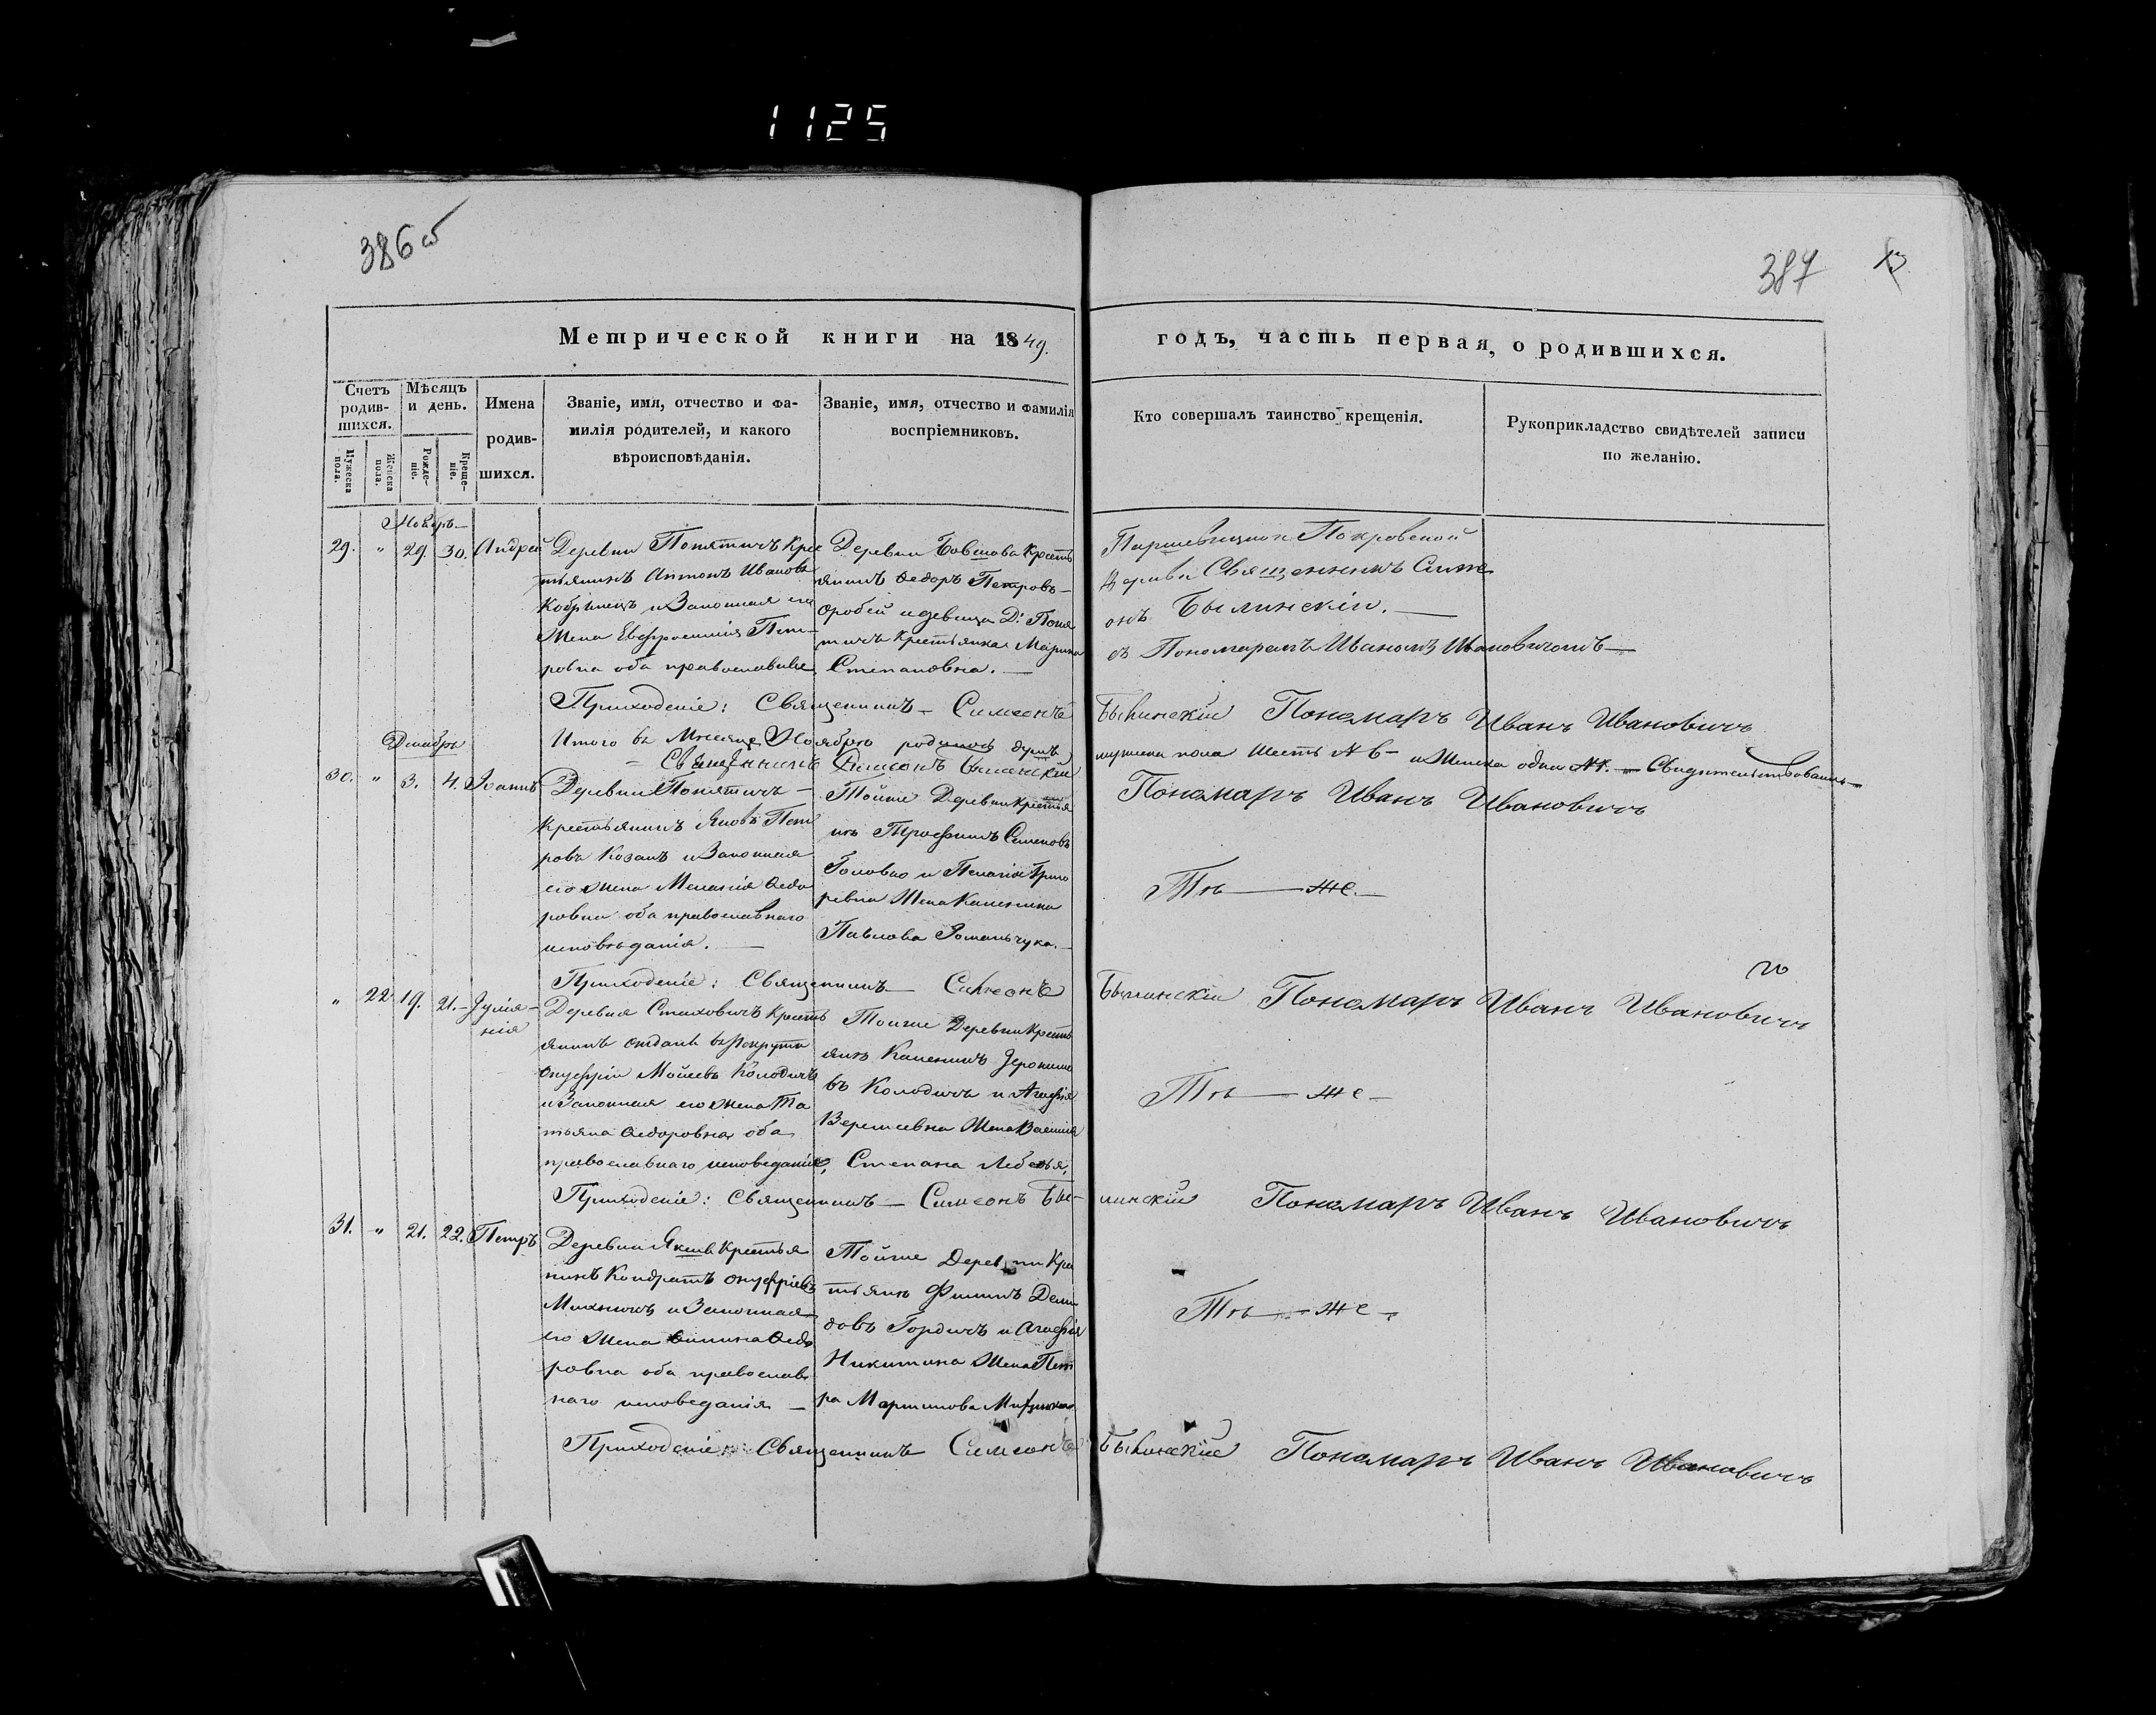 1125
386 об
387
13
Метрической книги на 1849.
годъ, часть первая, о родившихся.
Счетъ родив-шихся.
Мѣсяцъ и день.
Имена родив-шихся.
Званіе, имя, отчество и фа-
милія родителей, и какого
вѣроисповѣданія.
Званіе, имя, отчество и фамилія
воспріемниковъ.
Кто совершалъ таинство крещенія.
Рукоприкладство свидѣтелей записи
по желанію.
Мужеска пола.
Женска пола.
Рожде-ніе.
Креще-ніе.
Ноябрь
29. " 29. 30. Андрей
Деревни Понятичъ Крес
тьянинъ Антонъ Ивановъ
Кобринецъ и Законная его
Жена Евфросинія Пет-
ровна оба православные
Деревни Бовшова Кресть
янинъ Ѳедоръ Петровъ
и девица Д: Поня
тичъ Крестьянка Марина
Степановна.
Паршевицкой Покровской
Церкви Священникъ Симе
онъ Былинскій.
съ Пономаремъ Иваномъ Ивановичомъ
Священникъ Симеонъ
Былинскій Пономарь Иванъ Ивановичъ
Итого въ Месяце Ноябрю родилось душъ
мужеска пола Шесть N 6 и Женска одна N 1. Свидѣтельствовали
Священникъ Симеонъ Былинскій
Пономарь Иванъ Ивановичъ
Декабрь
30. " 3. 4. Іоаннъ
Деревни Понятичъ
Крестьянинъ Яковъ Пет
ровъ Козакъ и Законная
его Жена Меланія Ѳедо
ровна оба православнаго
исповѣданія.
Тойже Деревни Крестья
нъ Трофимъ Семеновъ
Головко и Пелагія Григо
ревна Жена Каленика
Павлова Романчука.
Тѣ же.
Священникъ Симеонъ
Былинскій Пономарь Иванъ Ивановичъ
" 22 19. 21. Іуліа-
нія
Деревня Стаховичъ Кресть
янинъ отданъ въ Рекруты
Онуфрій Мойсевъ Колодичъ
и Законная его Жена Та
тьяна Ѳедоровна оба
православнаго исповеданія,
Тойже Деревни Кресть
янъ Каленикъ Іеронимо
въ Колодичъ и Агафія
Жена Василія
Степана Лебедя.
Тѣ же
Священникъ Симеонъ Бы-
линскій Пономарь Иванъ Ивановичъ
31. " 21. 22. Петръ
Деревни Крестья
нинъ Кондратъ Онуфріевъ
Михничъ и Законная
его Жена Ѳедо
ровна оба православ
наго исповеданія
Тойже Деревни Крес
тьянъ Филипъ Деми
довъ Гордичъ и Агафія
Никитина Жена Пет
ра Мартинова
Тѣ же
Священникъ Симеонъ
Былинскій Пономарь Иванъ Ивановичъ